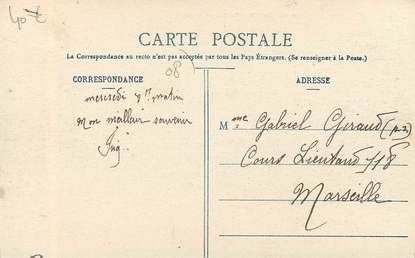 40 €
CARTE POSTALE
La Correspondance au recto n'est pas acceptée par tous les Pays Étrangers. (Se renseigner à la Poste.)
CORRESPONDANCE
08
mercredi matin
Mon meilleur souvenir
ADRESSE
Mme Gabriel Giraud
Cours Lieutaud 118
Marseille